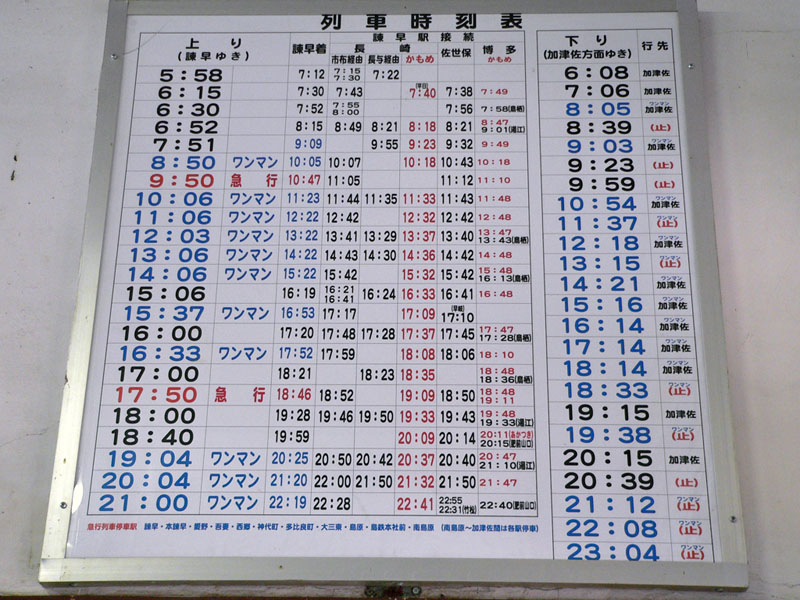 列車時刻表
上り (諫早ゆき) 諫早着 諫早駅接続 長崎 市布経由 長与経由 かもめ 佐世保 博多 かもめ
5:58 7:12 7:15 7:30 7:22
6:15 7:30 7:43 7:40 7:38 7:49
6:30 7:52 7:55 8:00 7:56 7:58(鳥栖)
6:52 8:15 8:49 8:21 8:18 8:21 8:47 9:01(湯江)
7:51 9:09 9:55 9:23 9:32 9:49
8:50 ワンマン 10:05 10:07 10:18 10:43 10:18
9:50 急行 10:47 11:05 11:12 11:10
10:06 ワンマン 11:23 11:44 11:35 11:33 11:43 11:48
11:06 ワンマン 12:22 12:42 12:32 12:42 12:48
12:03 ワンマン 13:22 13:41 13:29 13:37 13:40 13:47 13:43(鳥栖)
13:06 ワンマン 14:22 14:43 14:30 14:36 14:42 14:48
14:06 ワンマン 15:22 15:42 15:32 15:42 15:48 16:13(鳥栖)
15:06 16:19 16:21 16:41 16:24 16:33 16:41 16:48
15:37 ワンマン 16:53 17:17 17:09 (早岐) 17:10
16:00 17:20 17:48 17:28 17:37 17:45 17:47 17:28(鳥栖)
16:33 ワンマン 17:52 17:59 18:08 18:06 18:10
17:00 18:21 18:23 18:35 18:48 18:36(鳥栖)
17:50 急行 18:46 18:52 19:09 18:50 18:48 19:11
18:00 19:28 19:46 19:50 19:33 19:43 19:48 19:33(湯江)
18:40 19:59 20:09 20:14 20:11(あかつき) 20:15(肥前山口)
19:04 ワンマン 20:25 20:50 20:42 20:37 20:40 20:47 21:10(湯江)
20:04 ワンマン 21:20 22:00 21:50 21:32 21:50 21:47
21:00 ワンマン 22:19 22:28 22:41 22:55 22:31(竹松) 22:40(肥前山口)
急行列車停車駅 諫早・本諫早・愛野・吾妻・西郷・神代町・多比良町・大三東・島原・島鉄本社前・南島原 (南島原～加津佐間は各駅停車)
下り (加津佐方面ゆき) 行先
6:08 加津佐
7:06 加津佐
8:05 ワンマン 加津佐
8:39 (止)
9:03 ワンマン 加津佐
9:23 (止)
9:59 (止)
10:54 ワンマン 加津佐
11:37 ワンマン (止)
12:18 ワンマン 加津佐
13:15 ワンマン (止)
14:21 ワンマン 加津佐
15:16 ワンマン 加津佐
16:14 ワンマン 加津佐
17:14 ワンマン 加津佐
18:14 ワンマン 加津佐
18:33 ワンマン (止)
19:15 加津佐
19:38 ワンマン (止)
20:15 加津佐
20:39 (止)
21:12 ワンマン (止)
22:08 ワンマン (止)
23:04 ワンマン (止)